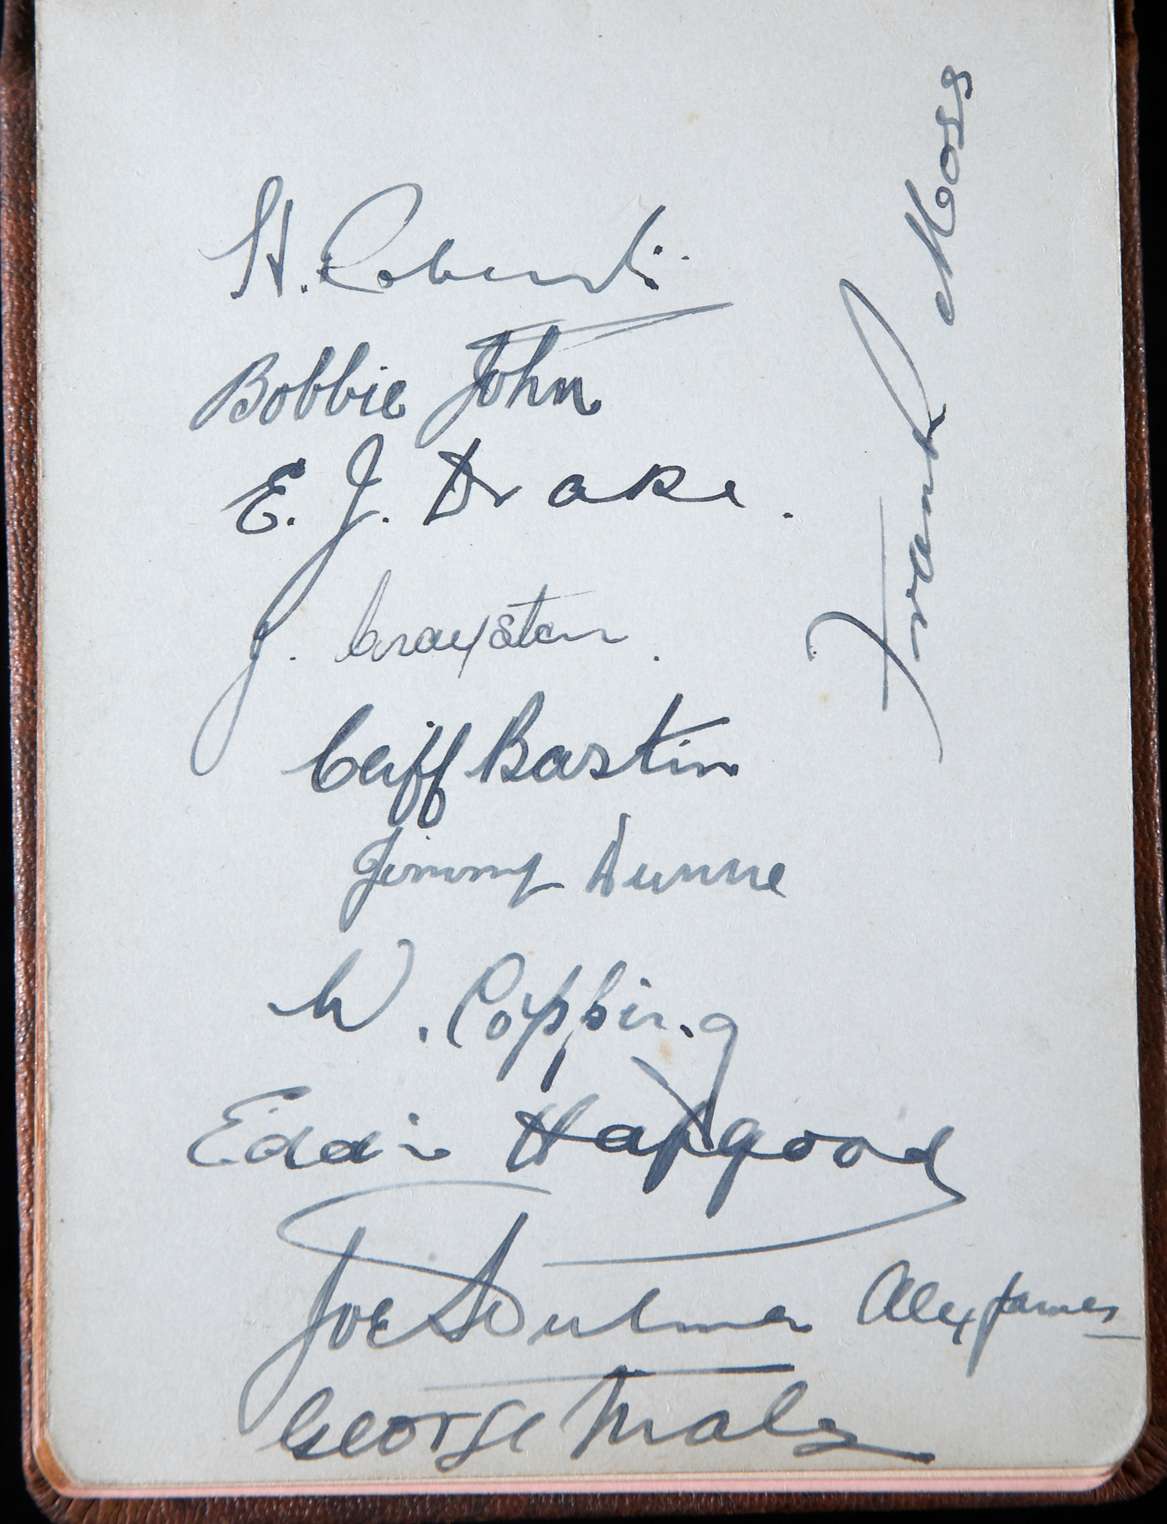 H. Roberts
Bobbie John
E. J. Drake.
J. Crayston.
Cliff Bastin
Jimmy Dunne
W. Copping
Eddie Hapgood
Joe Hulme
Alex James
George Male
Frank Moss